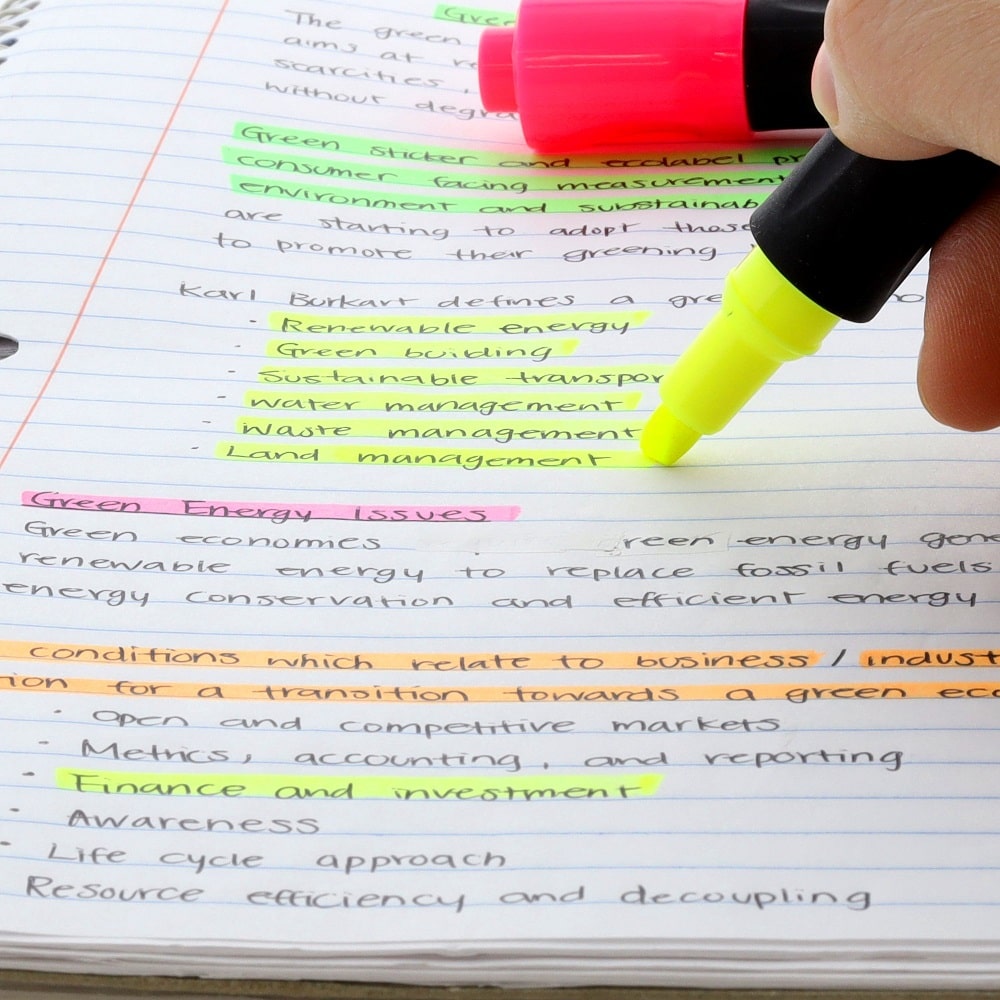 The green
aims at
scarcities,
without
Green sticker and ecolabel
consumer facing measurement
environment and
are starting to adopt these
to promote their greening
Karl Burkart defines a
· Renewable energy
· Green building
· Sustainable
· water management
· waste management
· Land management
Green Energy Issues
Green economies energy
renewable energy to replace fossil fuels
energy conservation and efficient energy
conditions which relate to business /
for a transition towards a green
· Open and competitive markets
· Metrics, accounting, and reporting
· Finance and investment
· Awareness
· Life cycle approach
Resource efficiency and decoupling